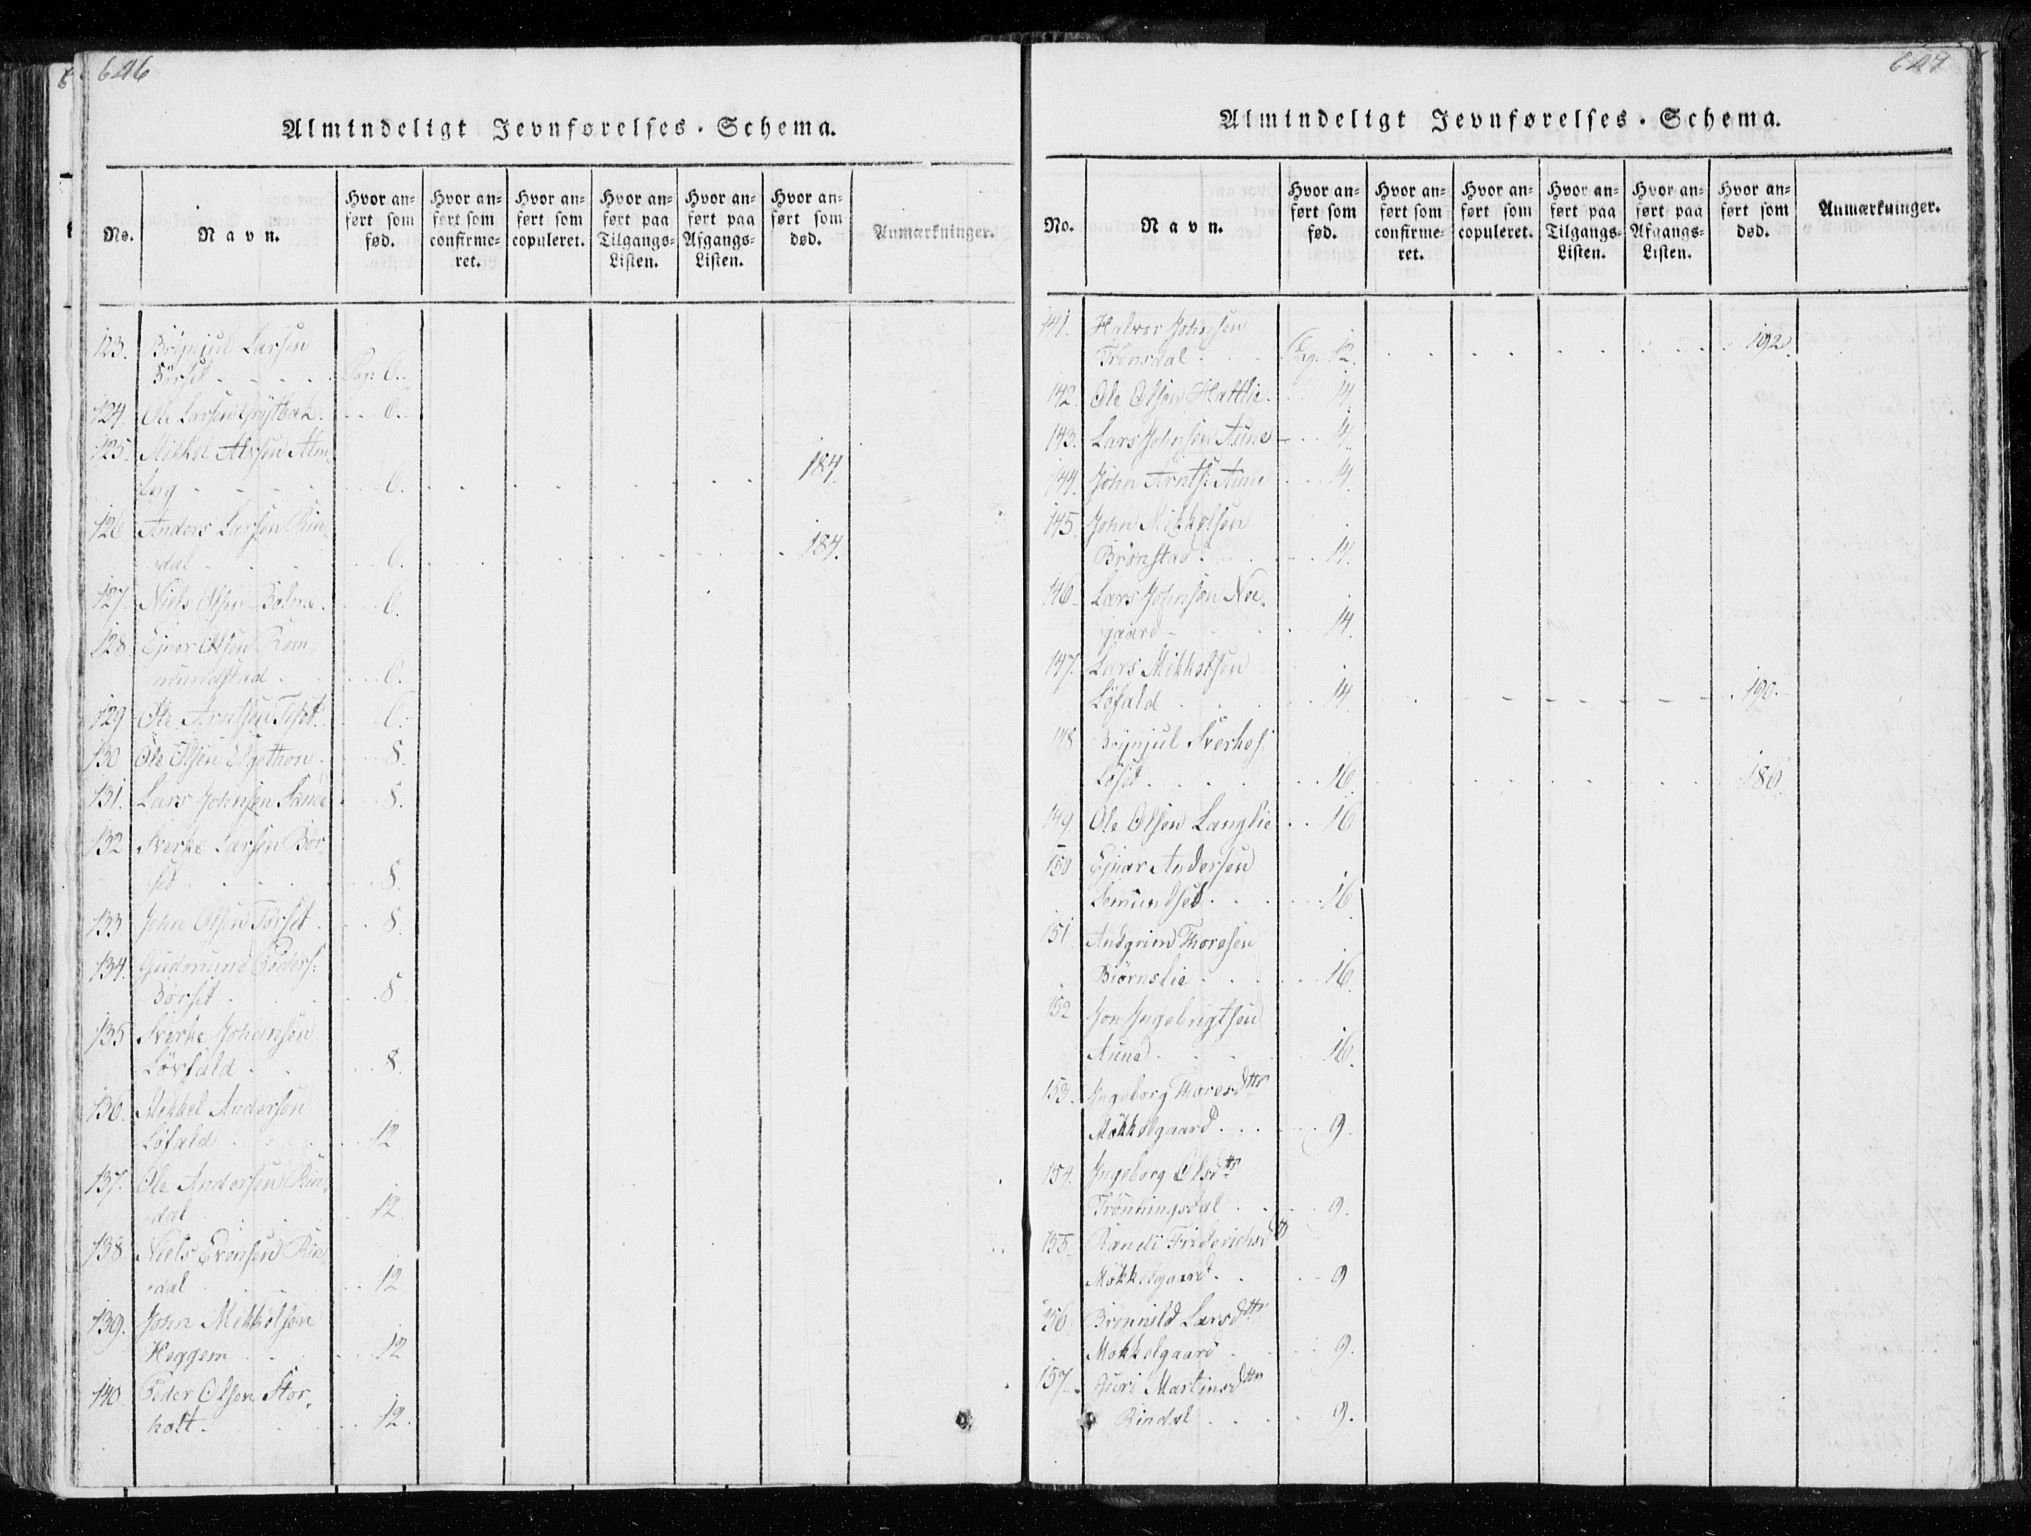 646
Almindeligt Jevnførelses-Schema.
No.
Navn.
Hvor an-
ført som
fød.
Hvor an-
ført som
confirme-
ret.
Hvor an-
ført som
copuleret.
Hvor an-
ført paa
Tilgangs-
Listen.
Hvor an-
ført paa
Afgangs-
Listen.
Hvor an-
ført som
død.
Anmærkninger.
123. Brynjul Larsen
Børset Pag: 6.
124. Ole Larsen Grytbak 6.
125. Mikkel Alm-
berg 6. 184.
126 Anders Larsen Rin-
dal 6. 184.
127. Niels Olsen Bolme 6.
128 Ejner Olsen Rom-
mundstad 6.
129 Ole Arntsen 6.
130 Ole Olsen 8.
131. Lars Johnsen 8.
132 Sverke Larsen Bør-
set 8.
133. John Olsen Tørset 8.
134. Gudmund Peders:
Børset 8
135 Sverke Johansen
Løvfald 8.
136. Mikkel Andersen
Løfald 12
137. Ole Andersen Rin-
dal 12
138. Niels Evensen Rin-
dal 12
139. John Mikkelsen
Heggem 12
140. Peder Olsen Stor-
holt 12.
647
Almindeligt Jevnførelses-Schema.
No.
Navn.
Hvor an-
ført som
fød.
Hvor an-
ført som
confirme-
ret.
Hvor an-
ført som
copuleret.
Hvor an-
ført paa
Tilgangs-
Listen.
Hvor an-
ført paa
Afgangs-
Listen.
Hvor an-
ført som
død.
Anmærkninger.
141. Halvor Johnsen
Trønsdal Pag: 12. 192.
142. Ole Olsen Hattlie 14.
143. Lars Johnsen Aune 14.
144. John Arnts: Aune 14.
145 John Mikkelsen
Brønstad 14.
146. Lars Johnsen Nee-
gaard 14.
147. Lars Mikkelsen
Løfald 14. 190.
148 Brynjul Sverkes:
Løset 16. 180.
149 Ole Olsen Langlie 16
150 Ejnar Andersen
Romundset 16.
151. Andgrim Thoresen
Biørnslie 16.
152 Jon Ingebrigtsen
Aune 16.
153. Ingeborg Thoresdttr
Mökkelgaard 9.
154. Ingeborg Olsdtr
Trønningsdal 9.
155. Randi Friderichsd
Mökkelgaard 9
156 Brønnild Larsdttr
Mökkelgaard 9.
157. Guri Martinsdttr
Rindal 9.